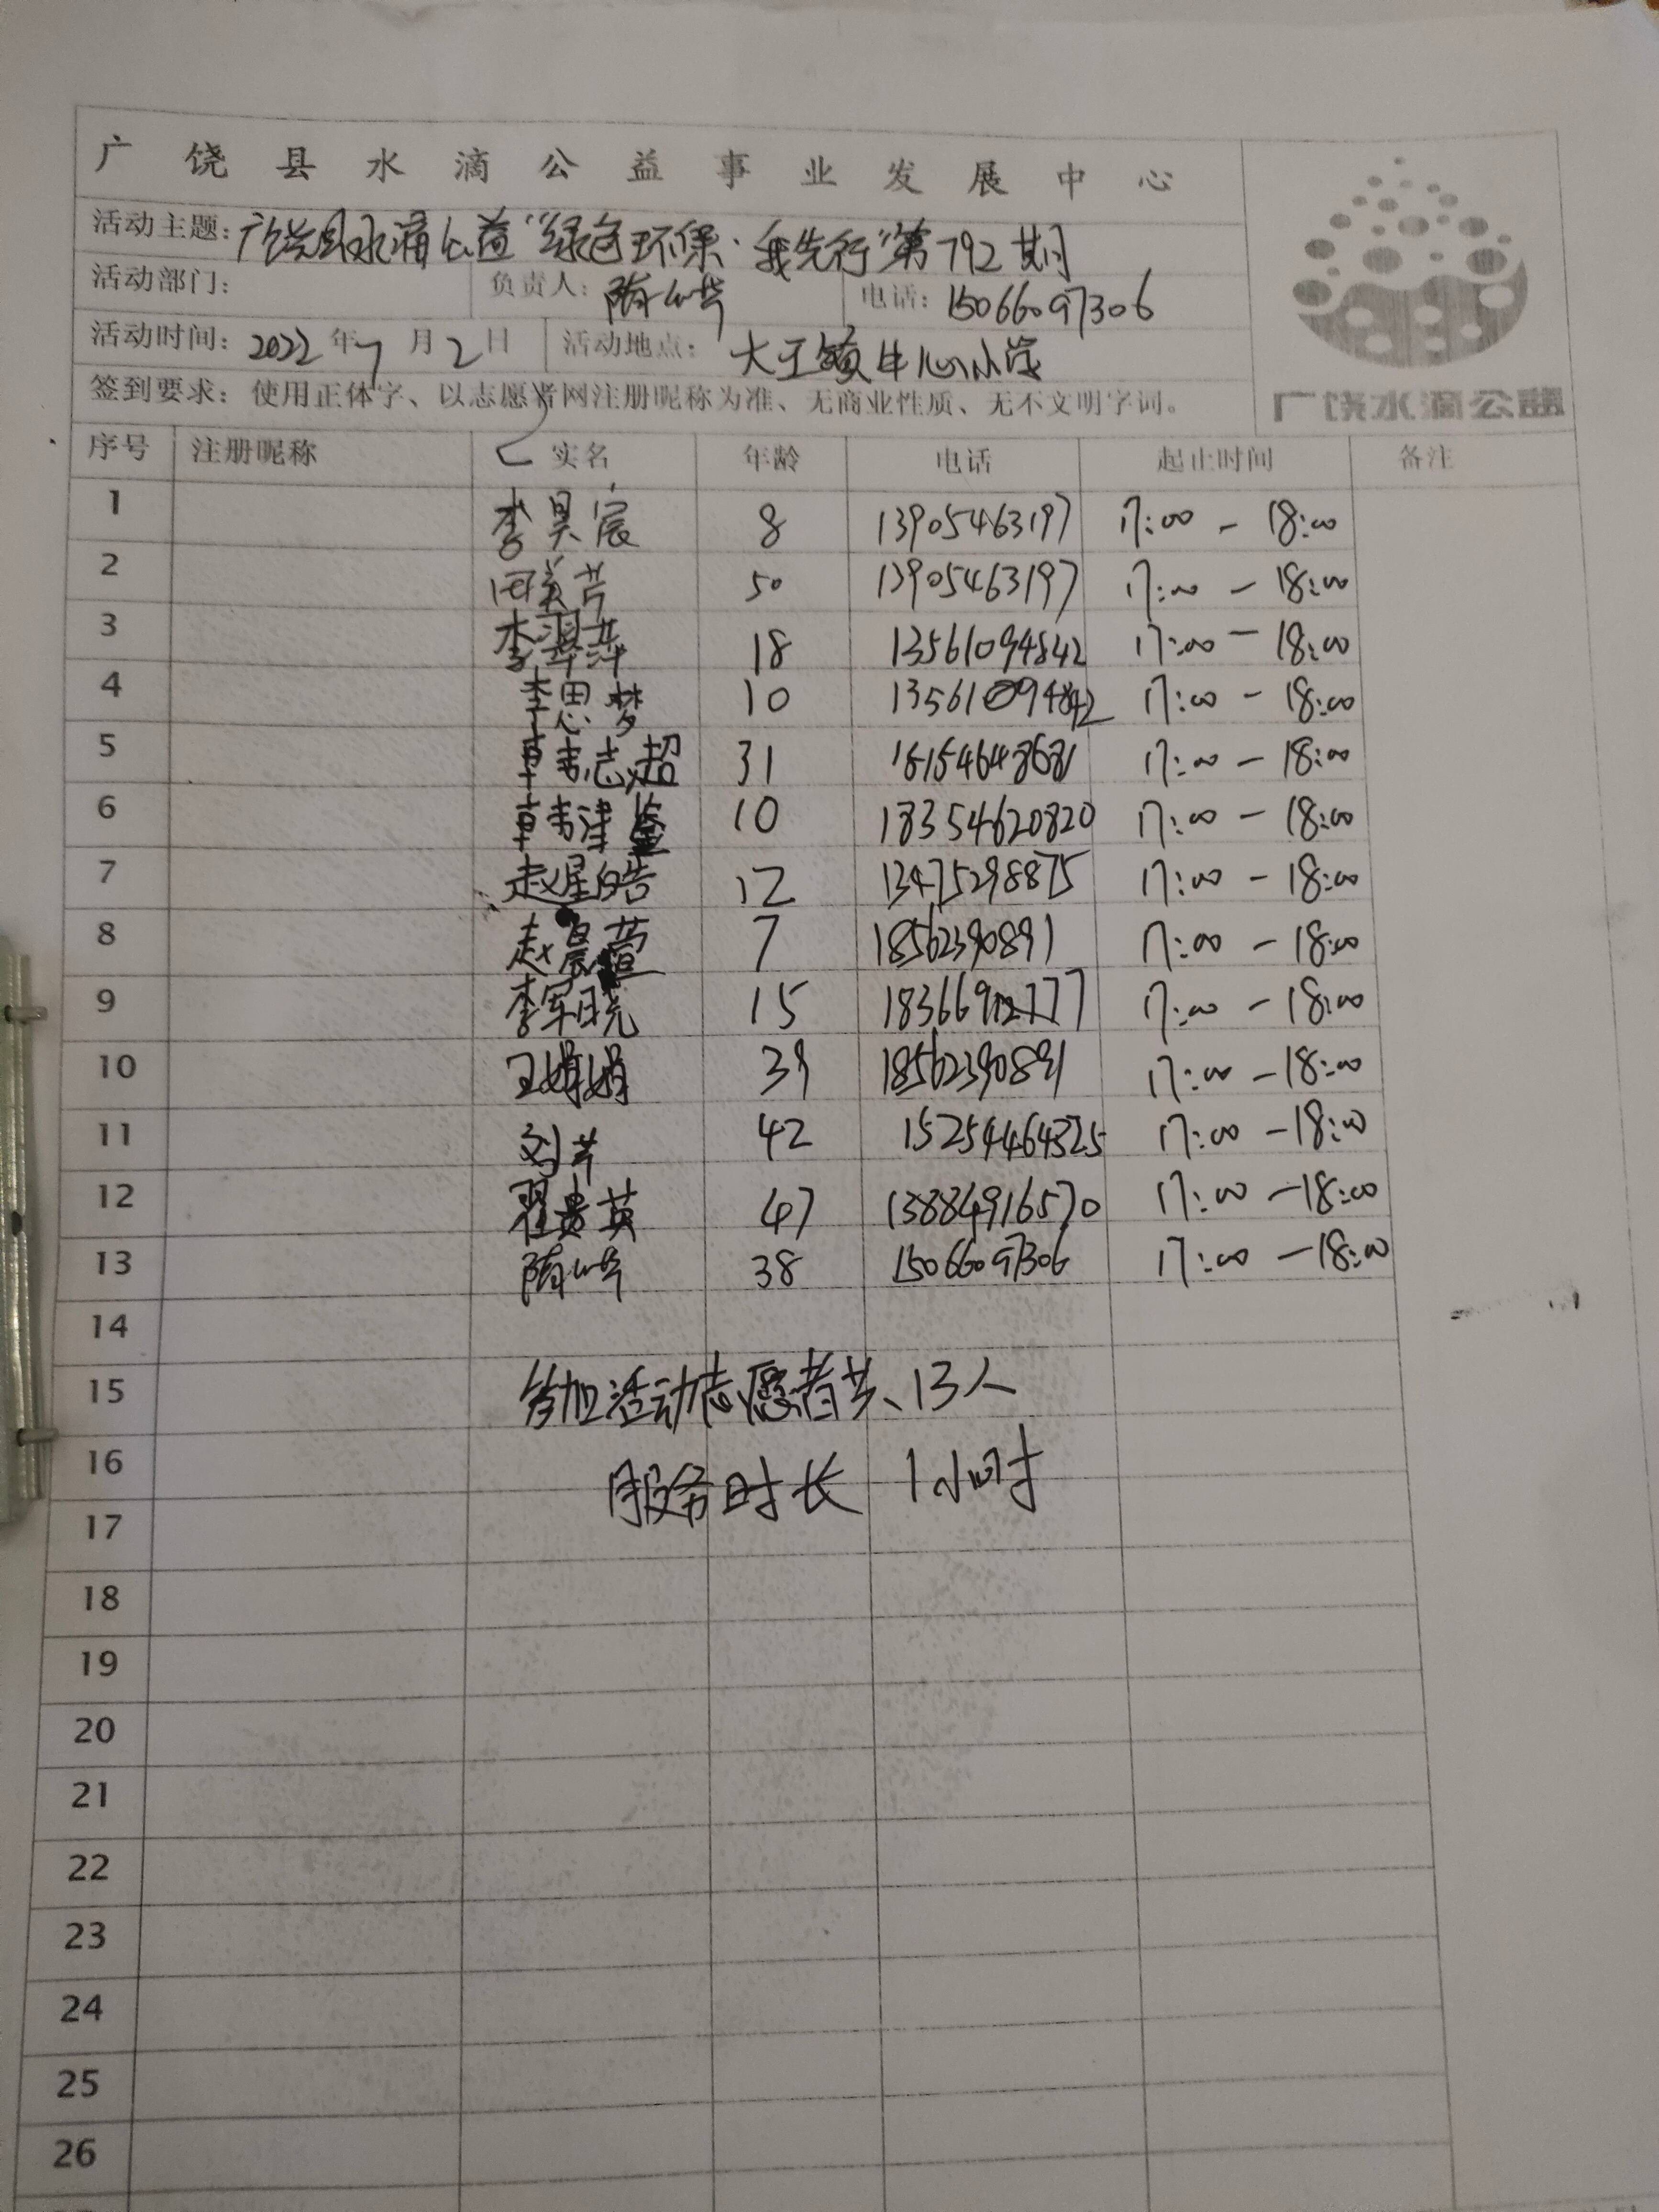 广饶县水滴公益事业发展中心
活动主题：广饶县水滴公益“绿色环保·我先行”第792期
活动部门： 负责人：隋小芹 电话：15066097306
活动时间：2022年7月2日 活动地点：大王镇中心小学
签到要求：使用正体字、以志愿者网注册昵称为准、无商业性质、无不文明字词。
广饶水滴公益
序号 注册昵称 实名 年龄 电话 起止时间 备注
1 李昊宸 8 13905463197 17:00-18:00
2 田美芹 50 13905463197 17:00-18:00
3 李翠萍 18 13561094842 17:00-18:00
4 李思梦 10 13561094842 17:00-18:00
5 韩志超 31 18154648681 17:00-18:00
6 韩津 10 18354620820 17:00-18:00
7 赵星皓 12 13475298875 17:00-18:00
8 赵晨萱 7 18562390891 17:00-18:00
9 李军晓 15 17:00-18:00
10 王娟娟 39 18562390891 17:00-18:00
11 刘芹 42 15254464325 17:00-18:00
12 翟贵英 47 13884916570 17:00-18:00
13 隋小芹 38 15066097306 17:00-18:00
14
15 参加活动志愿者共13人
16 服务时长 1小时
17
18
19
20
21
22
23
24
25
26